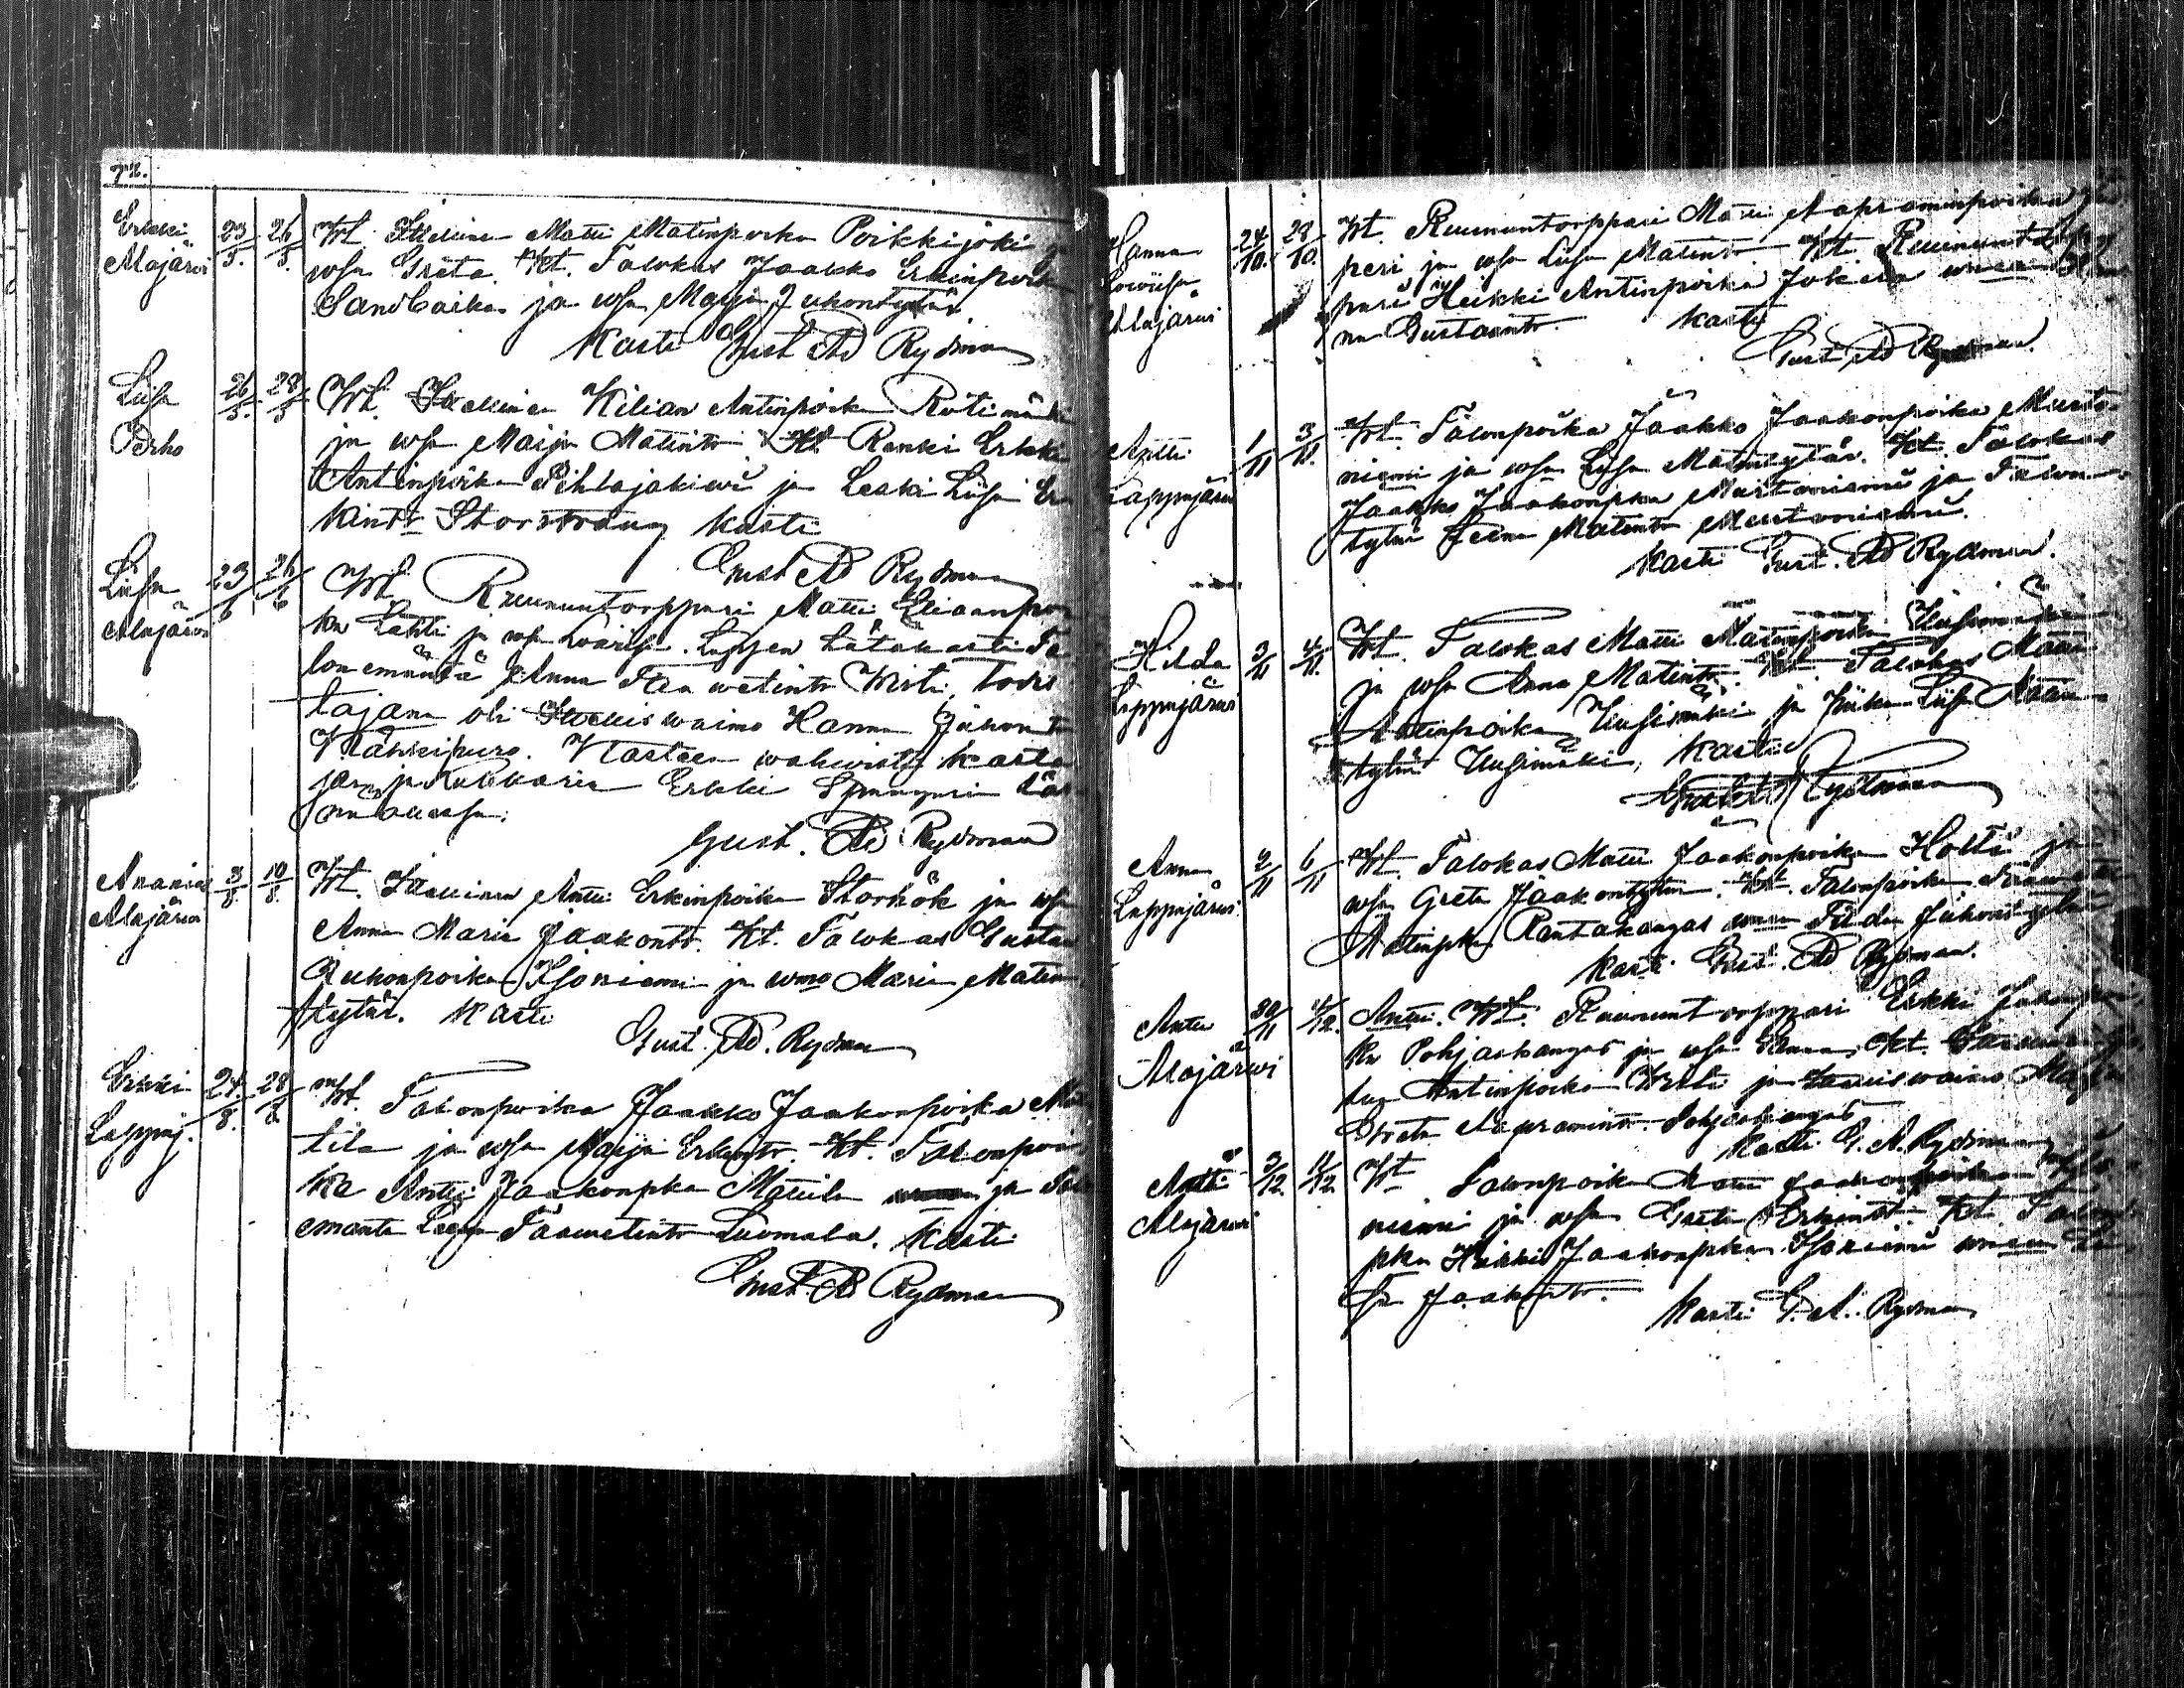 72.
Erkki
Alajärvi
23/5. 26/5.
Wt. Itellinen Matti Matinpoika Poikkijoki ja
wsa Greta. Kt. Talokas Jaakko Erkinpoika
Sandbacka ja wsa Maija Juhontytär.
Kasti Gust Ad Rydman
Liisa
Perho
26/5. 28/5
Wt. Itellinen Kilian Antinpoika Riitimäki
ja wsa Maija Matintr. Kt. Renki Erkki
Antinpoika Pihlajaniemi ja Leski Liisa Er
kintr Storstrång Kasti
Gust Ad Rydman
Liisa
Alajärvi
23/6 26/6
Wt. Ruununtorppari Matti Eliaanpoi
ka Lahti ja wsa Lovisa. Lapsen hätäkasti Ta
lon emäntä Anna Taawetintr Wirsti, todis
tajana oli Itellis waimo Hanna Juhontr
Mähkipuro. Kasteen wahwisti kasta
jan ja Lukkarin Erkki Spangarin läs
nä ollessa.
Gust. Ad Rydman
Ananias
Alajärvi
3/8. 10/8.
Wt. Itellinen Antti Erkinpoika Storhök ja wsa
Anna Maria Jaakontr. Kt. Talokas Gustaa
Juhonpoika Isoniemi ja wmo Maria Matin
tytär. Kasti
Gust. Ad. Rydman
Erkki
Lappaj.
24/8. 28/8.
Wt. Talonpoika Jaakko Jaakonpoika Mat
tila ja wsa Maija Erkintr. Kt. Talonpoi
ka Antti Jaakonpka Mattila ja Talon
emäntä Liisa Taawetintr Luomala. Kasti
Gust. Ad Rydman
Hanna
Lowiisa
Alajärvi
24/10. 28/10.
Wt. Ruununtorppari Matti Aapraminpoika
peri ja wsa Liisa Matintr. Kt. Ruununtorp
pari Heikki Antinpoika Jokela
na Gustaantr. Kasti
Gust Ad Rydman.
Antti
Lappajärvi
1/11 3/11.
Wt. Talonpoika Jaakko Jaakonpoika Musta
niemi ja wsa Liisa Matintytär. Kt. Talokas
Jaakko Jaakonpka Mustaniemi ja Talon
tytär Leena Matintr Mustaniemi.
Kasti Gust. Ad Rydman.
Hilda
Lappajärvi
3/11 4/11.
Wt. Talokas Matti Matinpoika Uusimäki
ja wsa Anna Matintr. Kt. Talokas Matti
Matinpoika Uusimäki ja Piika Liisa Matin
tytär Uusimäki, Kasti
Gust Ad Rydman
Anna
Lappajärvi
2/11 6/11
Wt. Talokas Matti Jaakonpoika Hotti ja
wsa Greta Jaakontytär. Kt. Talonpoika
Matinpka Rantakangas Juhontytär
Kasti Gust. Ad Rydman.
Antti
Alajärvi
30/11 4/12.
Antti. Wt. Ruununtorppari Erkki Juhonpoi
ka Pohjaskangas ja wsa Sanna. Kt.
Antinpoika Wirsti ja Itellis waimo Maja
Greta Aapramintr. Pohjaskangas
Kasti G. A. Rydman
Antti
Alajärvi
3/12. 11/12.
Wt. Talonpoika Matti Jaakonpoika
niemi ja wsa Greta Erkintr. Kt. Talon
pka Heikki Jaakonpka Isoniemi
sa Jaakontr.
Kasti G. A. Rydman